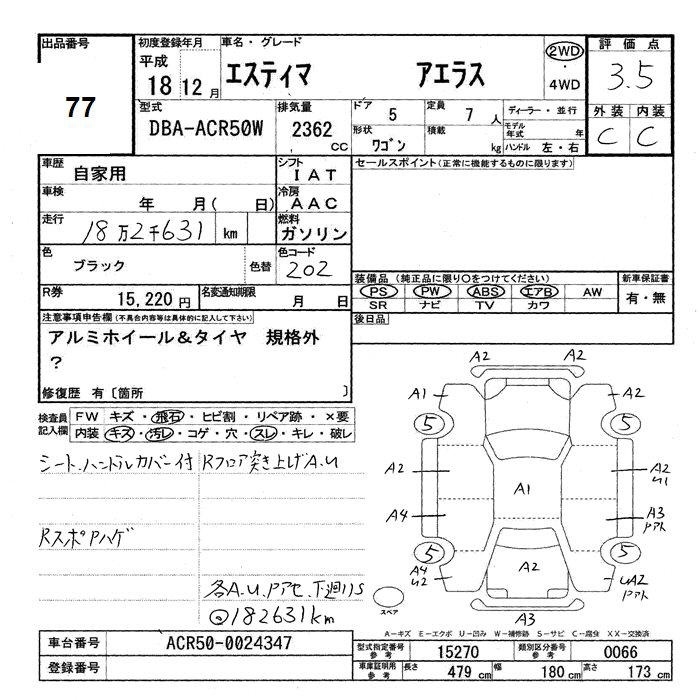 出品番号 初度登録年月 車名・グレード 評価点
77 平成 18 12月 エスティマ アエラス 2WD・4WD 3.5
外装 内装
C C
型式 排気量 ドア 5 定員 7人 ディーラー・並行
DBA-ACR50W 2362cc 形状 ワゴン 積載 kg モデル年式 年
ハンドル 左・右
車歴 自家用 シフト IAT セールスポイント(正常に機能するものに限ります)
車検 年 月( 日) 冷房 AAC
走行 18万2千631 km 燃料 ガソリン
色 ブラック 色替 色コード 202
装備品(純正品に限り○をつけてください) 新車保証書
PS PW ABS エアB AW 有・無
SR ナビ TV カワ
R券 15,220円 名変通知期限 月 日
後日品
注意事項申告欄(不具合内容等は具体的に記入して下さい)
アルミホイール&タイヤ 規格外
?
修復歴 有〔箇所 〕
検査員記入欄 FW キズ・飛石・ヒビ割・リペア跡・×要
内装 キズ・汚レ・コゲ・穴・スレ・キレ・破レ
シート、ハンドルカバー付 Rフロア突き上げA.U
Rスポアハゲ
各A.U.Pアセ、下廻りS
182631km
A2 A2
A1 A2
5 5
A2 A1 A2 U1
A4 A3 Pアト
5 5
A4 U2 A2 UA2 Pアト
スペア A3
A-キズ E-エクボ U-凹み W-補修跡 S-サビ C-腐食 XX-交換済
車台番号 ACR50-0024347 型式指定番号 参考 15270 類別区分番号 参考 0066
登録番号 車庫証明用 参考 長さ 479cm 幅 180cm 高さ 173cm